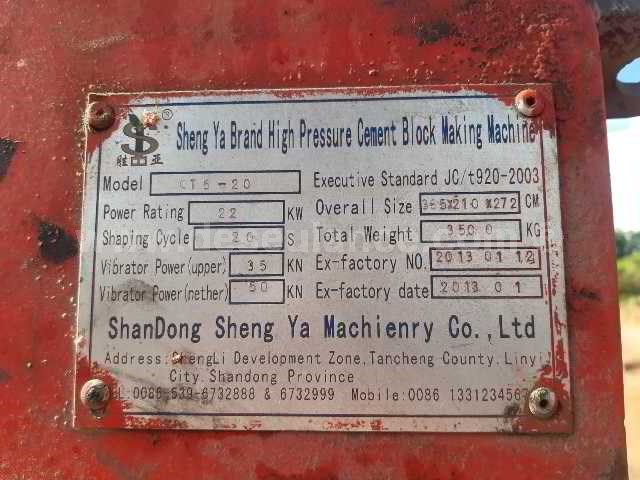 ®
S
胜 亚
Sheng Ya Brand High Pressure Cement Block Making Machine
Model QT5-20 Executive Standard JC/t920-2003
Power Rating 22 KW Overall Size 365x210x272 CM
Shaping Cycle 20 S Total Weight 3500 KG
Vibrator Power(upper) 35 KN Ex-factory NO. 2013 01 12
Vibrator Power(nether) 50 KN Ex-factory date 2013 01
ShanDong Sheng Ya Machienry Co.,Ltd
Address: ShengLi Development Zone,Tancheng County. Linyi
City. Shandong Province
EL:0086-539-6732888 & 6732999 Mobile:0086 1331234567